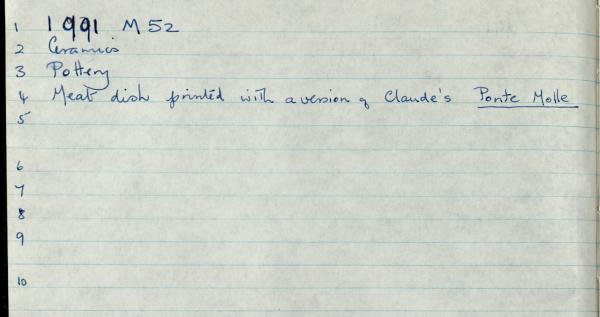 1 1991 M 52
2 Ceramics
3 Pottery
4 Meat dish printed with a version of Claude's Ponte Molle
5
6
7
8
9
10